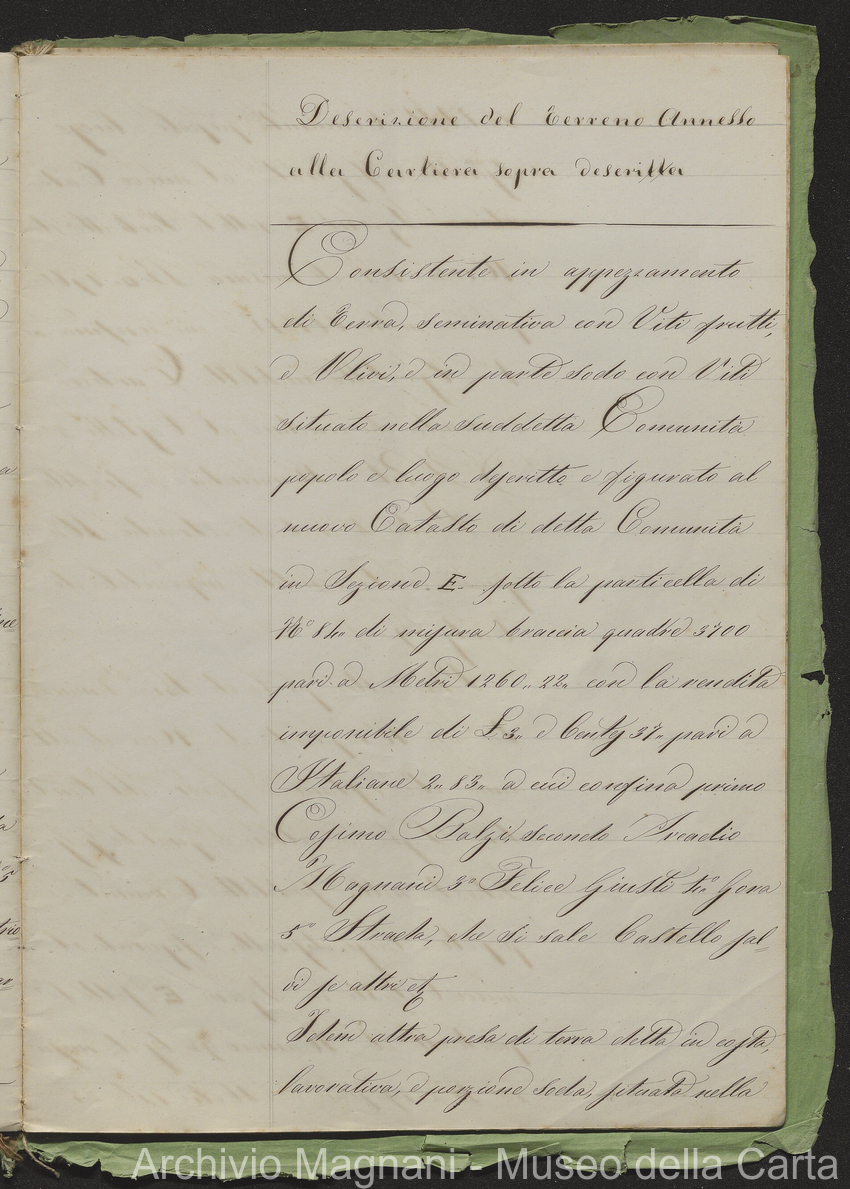 Descrizione del Terreno Annesso
alla Cartiera sopra descritta
Consistente in appezzamento
di Terra, seminativa con Viti frutti,
e Olivi, e in parte sodo con Viti
situato nella suddetta Comunità
popolo e luogo descritto e figurato al
nuovo Catasto di detta Comunità
in Sezione E sotto la particella di
N° 84" di misura braccia quadre 3700
pari a Metri 1260,,22" con la rendita
imponibile di £ 3" e Cent 37" pari a
Italiane 2,,83" a cui confina primo
Cosimo Balzi, secondo Arcadio
Magnani 3° Felice Giusti 4° Gora
5° Strada, che si sale Castello sal=
vi se altri
Idem altra presa di terra detta in costa,
lavorativa, e porzione soda, situata nella
Archivio Magnani - Museo della Carta